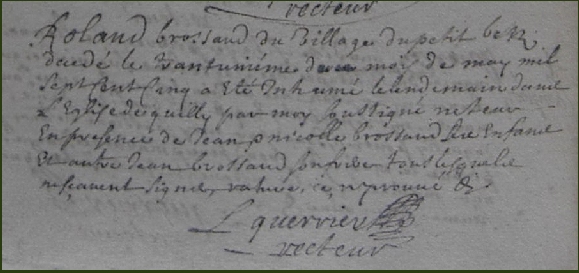 recteur
Roland brossaud du village du petit betz
decedé le trantuniéme du moy de may mil
sept cent cinq a eté Inhumé le lendemain dans
L'Eglise de quilly par moy soussigné recteur
En presence de Jean & nicolle brossaud ses Enfans
Et autre Jean brossaud son frere tous lesquels
ne sçavent signer, &c.
L guerrier
recteur